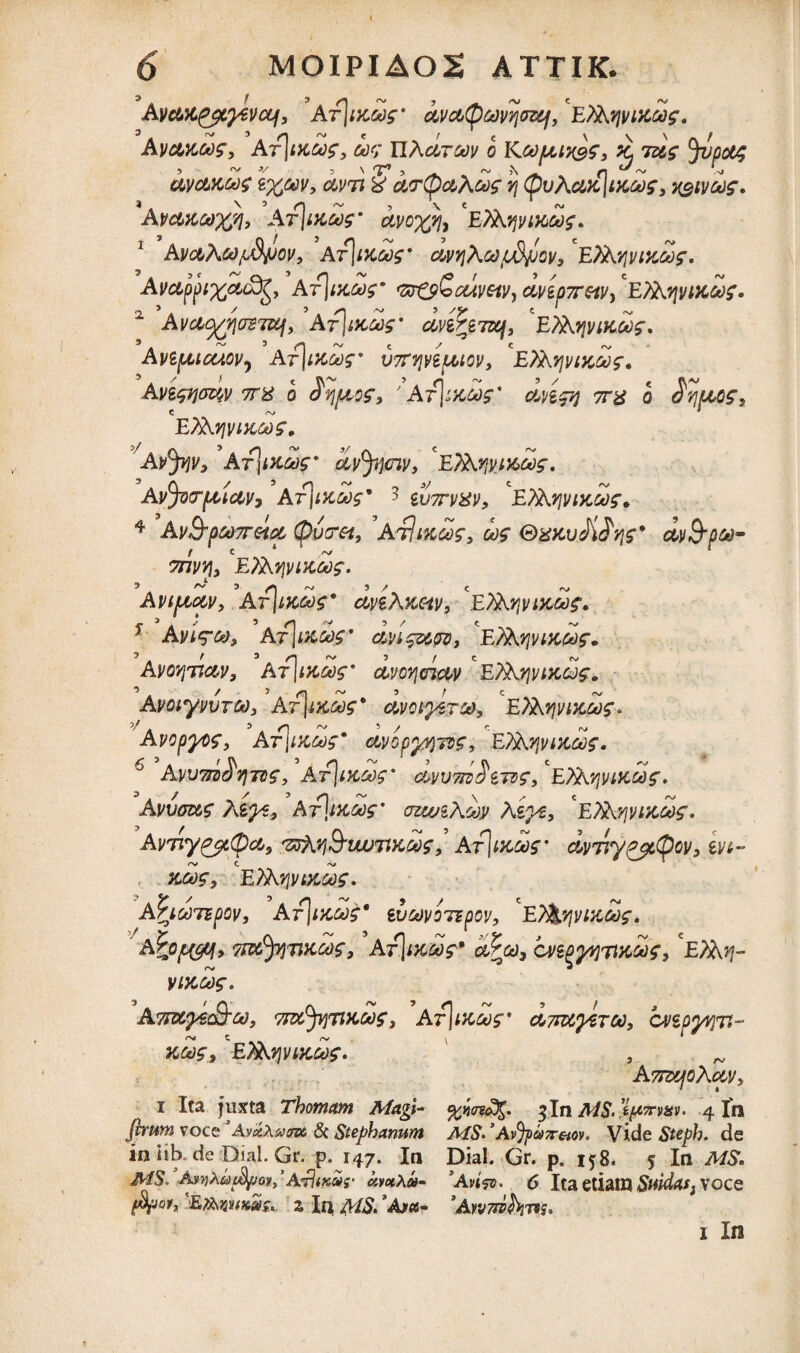 6 ΜΟΙΡΙΔΟΣ ΑΤΤΙΚ.
Ἀνακραγέναι, Ἀττικῶς· ἀναφωνῆσαι, Ἑλληνικῶς.
Ἀνακῶς, Ἀττικῶς, ὡς Πλάτων ὁ Κωμικὸς, καὶ τὰς θύρας
ἀνακῶς ἔχων, ἀντὶ τοῦ ἀσφαλῶς ἢ φυλακτικῶς, κοινῶς.
Ἀνακωχὴ, Ἀττικῶς· ἀνοχὴ, Ἑλληνικῶς.
1 Ἀναλωμένον, Ἀττικῶς· ἀνηλωμένον, Ἑλληνικῶς.
Ἀναρριχᾶσθαι, Ἀττικῶς· προσβαίνειν, ἀνέρπειν, Ἑλληνικῶς.
2 Ἀνασχήσεται, Ἀττικῶς· ἀνέξεται, Ἑλληνικῶς.
Ἀνεμιαῖον, Ἀττικῶς· ὑπηνέμιον, Ἑλληνικῶς.
Ἀνέστησάν που ὁ δῆμος, Ἀττικῶς· ἀνέστη που ὁ δῆμος,
Ἑλληνικῶς.
Ἄνθην, Ἀττικῶς· ἄνθησιν, Ἑλληνικῶς.
Ἀνθοσμίαν, Ἀττικῶς· 3 εὔπνουν, Ἑλληνικῶς.
4 Ἀνθρωπεία φύσει, Ἀττικῶς, ὡς Θουκυδίδης· ἀνθρω-
πίνη, Ἑλληνικῶς.
Ἀνιμᾶν, Ἀττικῶς· ἀνέλκειν, Ἑλληνικῶς.
5 Ἀνίστω, Ἀττικῶς· ἀνίστασο, Ἑλληνικῶς.
Ἀνοητίαν, Ἀττικῶς· ἀνοησίαν Ἑλληνικῶς.
Ἀνοιγνύτω, Ἀττικῶς· ἀνοιγέτω, Ἑλληνικῶς.
Ἄνοργος, Ἀττικῶς· ἀνόργητος, Ἑλληνικῶς.
6 Ἀνυπόδητος, Ἀττικῶς· ἀνυπόδετος, Ἑλληνικῶς.
Ἀνύσας λέγε, Ἀττικῶς· συνελὼν λέγε, Ἑλληνικῶς.
Ἀντίγραφα, πληθυντικῶς, Ἀττικῶς· ἀντίγραφον, ἑνι-
κῶς, Ἑλληνικῶς.
Ἀξιώτερον, Ἀττικῶς· εὐωνότερον, Ἑλληνικῶς.
Ἄξομαι, παθητικῶς, Ἀττικῶς· ἄξω, ἐνεργητικῶς, Ἑλλη-
νικῶς.
Ἀπαγέσθω, παθητικῶς, Ἀττικῶς· ἀπαγέτω, ἐνεργητι-
κῶς, Ἑλληνικῶς.
Ἀπαιολᾶν,
1 Ita juxta Thomam Magi-
strum voce Ἀνάλωσαι & Stephanum
in lib. de Dial. Gr. p. 147. In
MS. Ἀνηλωμένον, Ἀττικῶς· ἀναλω-
μένον, Ἑλληνικῶς. 2 In MS. Ἀνα-
χήσεσθαι. 3 In MS. ἔμπνουν. 4 In
MS. Ἀνθρώπειον. Vide Steph. de
Dial. Gr. p. 158. 5 In MS.
Ἀνίστο. 6 Ita etiam Suidas, voce
Ἀνυπόδητος.
1 In